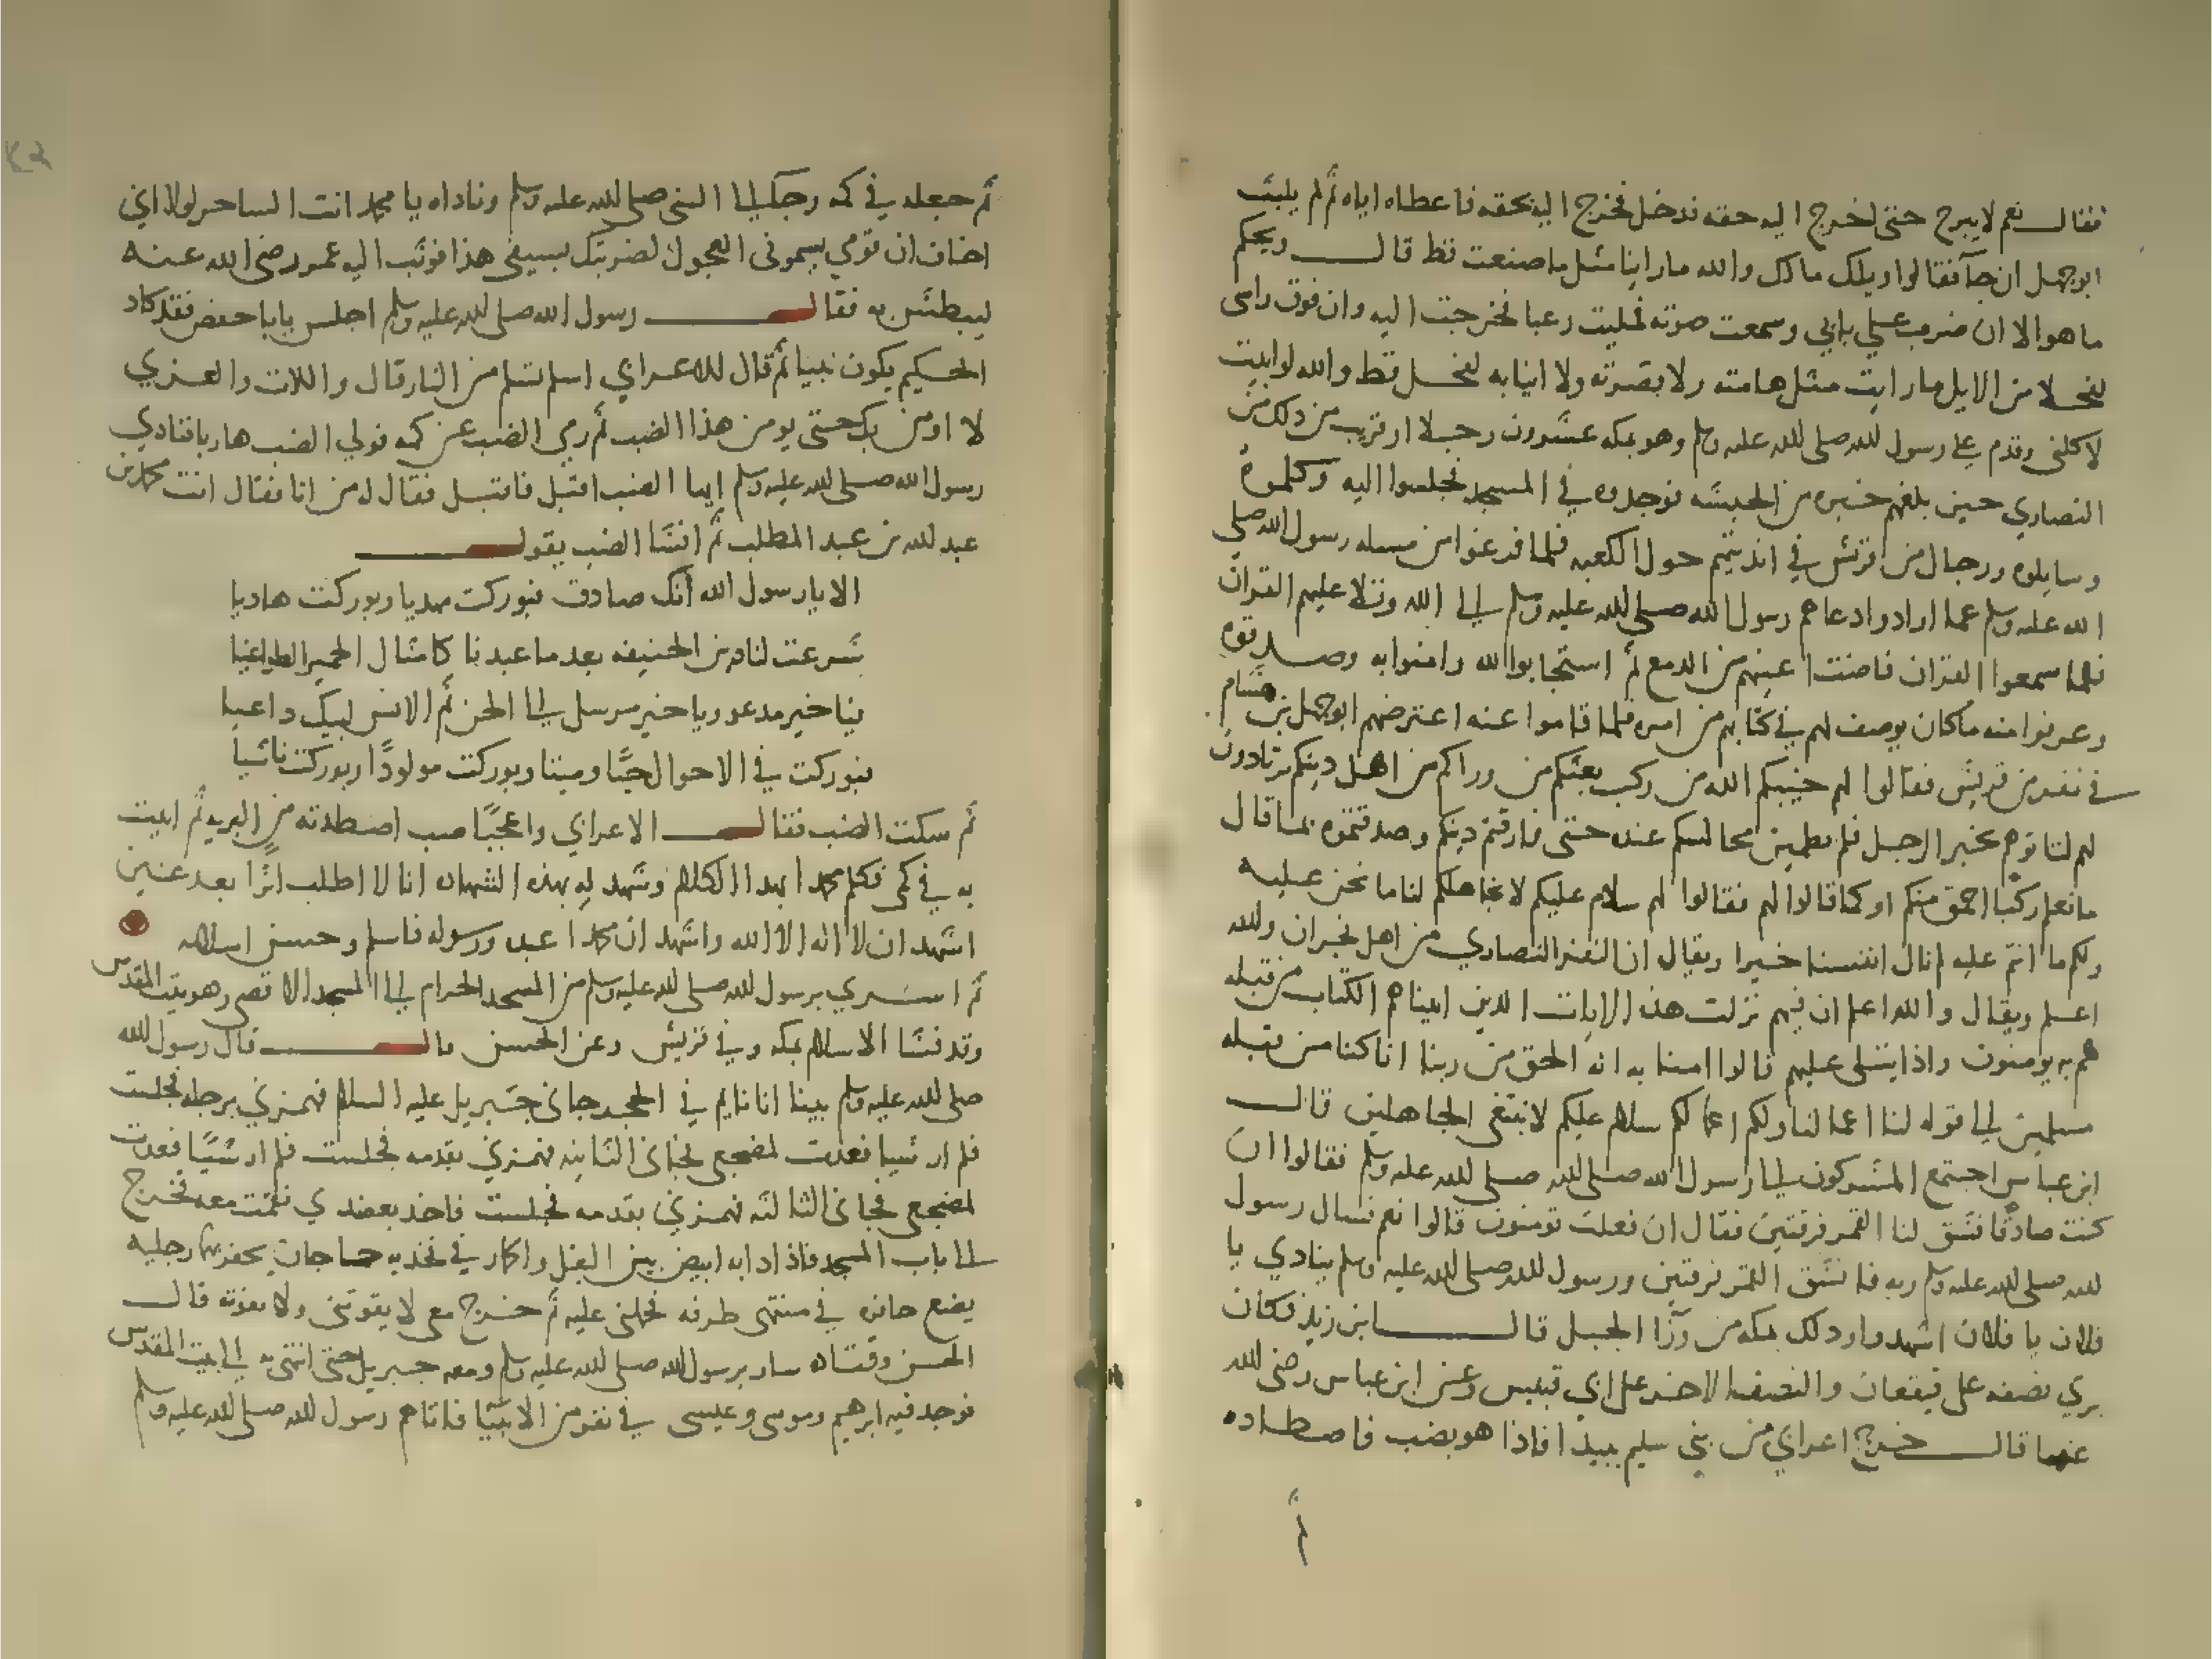 فقال نعم لا يبرح حتى اخرج اليه حقه فدخل فخرج اليه بحقه فاعطاه اياه ثم لم يلبث
ابوجهل ان جآ فقالوا ويلك مالك والله ما راينا مثل ما صنعت قط قال ويحكم
ما هو الا ان ضرب علي بابي وسمعت صوته فمليت رعبا فخرجت اليه وان فوق راسى
لفحلا من الابل ما رايت مثل هامته ولا بقصرته ولا انيابه لفحل قط والله لو ابيت
لاكلنى وقدم على رسول الله صلى الله عليه وسلم وهو بمكه عشرون رجلا او قريب من ذلك من
النصاري حين بلغهم خبره من الحبشه فوجدوه في المسجد فجلسوا اليه وكلموه
وسايلوه ورجال من قريش في انديتهم حول الكعبه فلما فرغوا من مسله رسول الله صلى
الله عليه وسلم عما ارادوا دعاهم رسول الله صلى الله عليه وسلم الى الله وتلا عليهم القران
فلما سمعوا القران فاضت اعينهم من الدمع ثم استجابوا لله وامنوا به وصدقوه
وعرفوا منه ما كان يوصف لهم في كتابهم من امره فلما قاموا عنه اعترضهم ابوجهل بن هشام
في نفر من قريش فقالوا لهم خيبكم الله من ركب بعثكم من وراكم من اهل دينكم ترتادون
لهم لتاتوهم بخبر الرجل فلم تطمين مجالسكم عنده حتى فارقتم دينكم وصدقتموه بما قال
ما نعلم ركبا احمق منكم او كما قالوا لهم فقالوا لهم سلام عليكم لا نجاهلكم لنا ما نحن عليه
ولكم ما انتم عليه لم نال انفسنا خيرا ويقال ان النفر النصاري من اهل نجران والله
اعلم ويقال والله اعلم ان فيهم نزلت هذه الايات الذين اتيناهم الكتاب من قبله
هم به يومنون واذا يتلى عليهم قالوا امنا به انه الحق من ربنا انا كنا من قبله
مسلمين الى قوله لنا اعمالنا ولكم اعمالكم سلام عليكم لا نبتغى الجاهلين قال
ابن عباس اجتمع المشركون الى رسول الله صلى الله صلى الله عليه وسلم فقالوا ان
كنت صادقا فشق لنا القمر فرقتين فقال ان فعلت تومنون قالوا نعم فسال رسول
الله صلى الله عليه وسلم ربه فانشق القمر فرقتين ورسول الله صلى الله عليه وسلم ينادي يا
فلان يا فلان اشهدوا وذلك بمكه من ورآ الجبل قال ابن زيد فكان
يري نصفه على قيقعان والنصف الاخر على ابي قبيس وعن ابن عباس رضى الله
عنهما قال خرج اعرابي من بني سليم يبيدا فاذا هو بضب فاصطاده
ثم
ثم جعله في كمه وجآ الى النبى صلى الله عليه وسلم وناداه يا محمد انت الساحر لولا اني
اخاف ان قومي يسمونى العجول لضربتك بسيفى هذا فوثب اليه عمر رضى الله عنه
ليبطش به فقال رسول الله صلى الله عليه وسلم اجلس يابا حفص فقد كاد
الحكيم يكون نبيا ثم قال للاعرابي اسلم تسلم من النار قال واللات والعزي
لا اومن بك حتى يومن هذا الضب ثم رمي الضب عن كمه فولي الضب هاربا فنادي
رسول الله صلى الله عليه وسلم ايها الضب اقبل فاقبل فقال له من انا فقال انت محمد بن
عبد الله بن عبد المطلب ثم انشا الضب يقول
الا يا رسول الله انك صادق فبوركت مهديا وبوركت هاديا
شرعت لنا دين الحنيفه بعد ما عبدنا كامثال الحمير الطواغيا
فيا خير مدعو ويا خير مرسل الى الجن ثم الانس لبيك داعيا
فبوركت في الاحوال حيًّا وميتا وبوركت مولودًا وبوركت ناشيا
ثم سكت الضب فقال الاعرابي واعجبًا ضب اصطدته من البريه ثم اتيت
به في كمى فكلم محمدا بهذا الكلام وشهد له بهذه الشهاده انا لا اطلب اثرًا بعد عين
اشهد ان لا اله الا الله واشهد ان محمدا عبده ورسوله فاسلم وحسن اسلامه
ثم اسري برسول الله صلى الله عليه وسلم من المسجد الحرام الى المسجد الاقصى وهو بيت المقدس
وقد فشا الاسلام بمكه وفي قريش وعن الحسن قال قال رسول الله
صلى الله عليه وسلم بينا انا نايم في الحجر جانى جبريل عليه السلام فهمزني برجله فجلست
فلم ار شيا فعدت لمضجعى فجانى الثانيه فهمزني بقدمه فجلست فلم ار شيًا فعدت
لمضجعي فجانى الثالثه فهمزني بقدمه فجلست فاخذ بعضدي فقمت معه فخرج
الى باب المسجد فاذا دابه ابيض بين البغل والحمار في فخذيه جناحان يحفز بهما رجليه
يضع حافره في منتهى طرفه فحملنى عليه ثم خرج معى لا يفوتنى ولا افوته قال
الحسن وقتاده سار برسول الله صلى الله عليه وسلم ومعه جبريل حتى انتهى به الى بيت المقدس
فوجد فيه ابرهيم وموسى وعيسى في نفر من الانبيا فاتاهم رسول الله صلى الله عليه وسلم